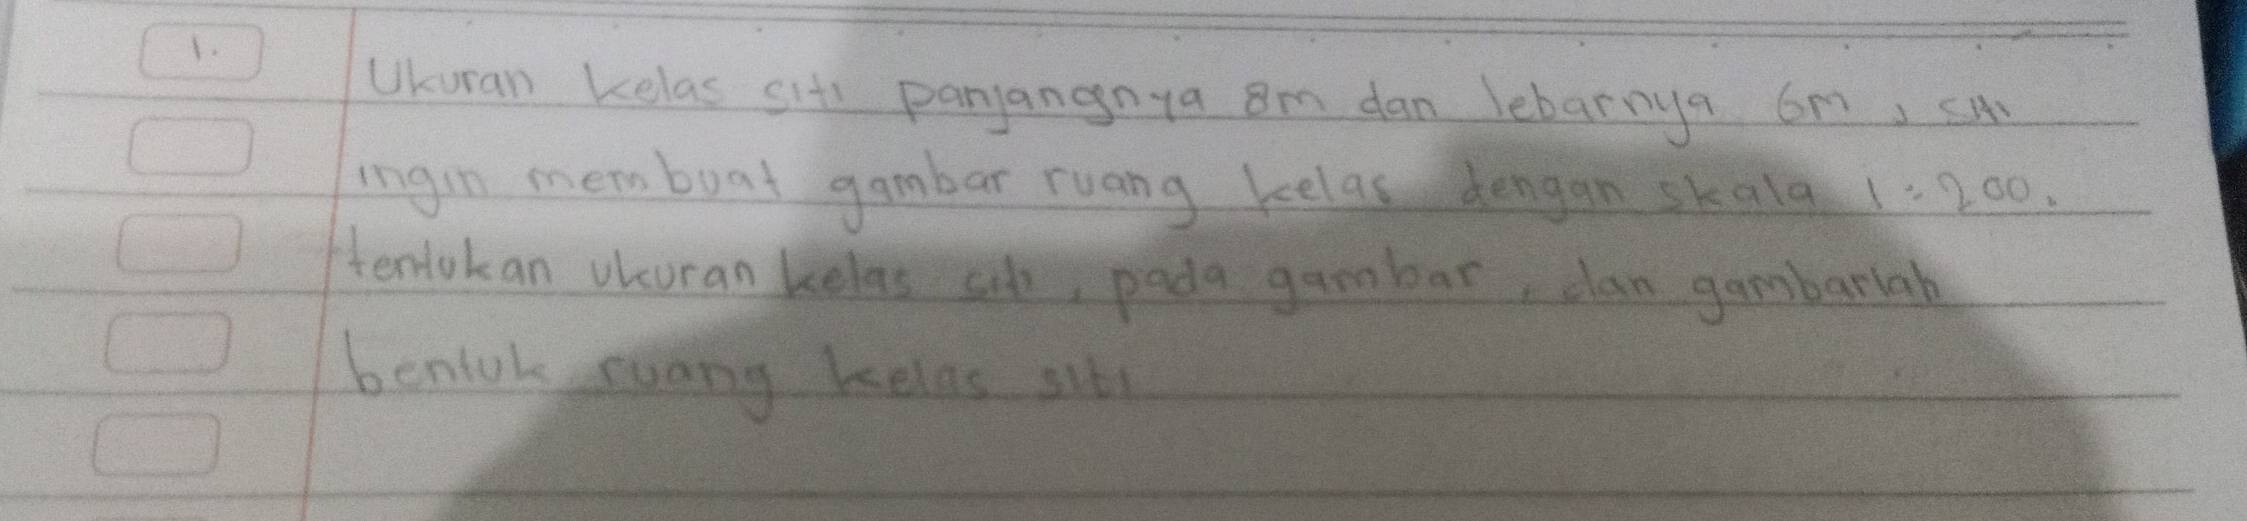 1.
Ukuran kelas siti panjangnya 8m dan lebarnya 6m, siti
ingin membuat gambar ruang kelas dengan skala 1:200.
tentukan ukuran kelas siti, pada gambar, dan gambarlah
bentuk ruang kelas siti